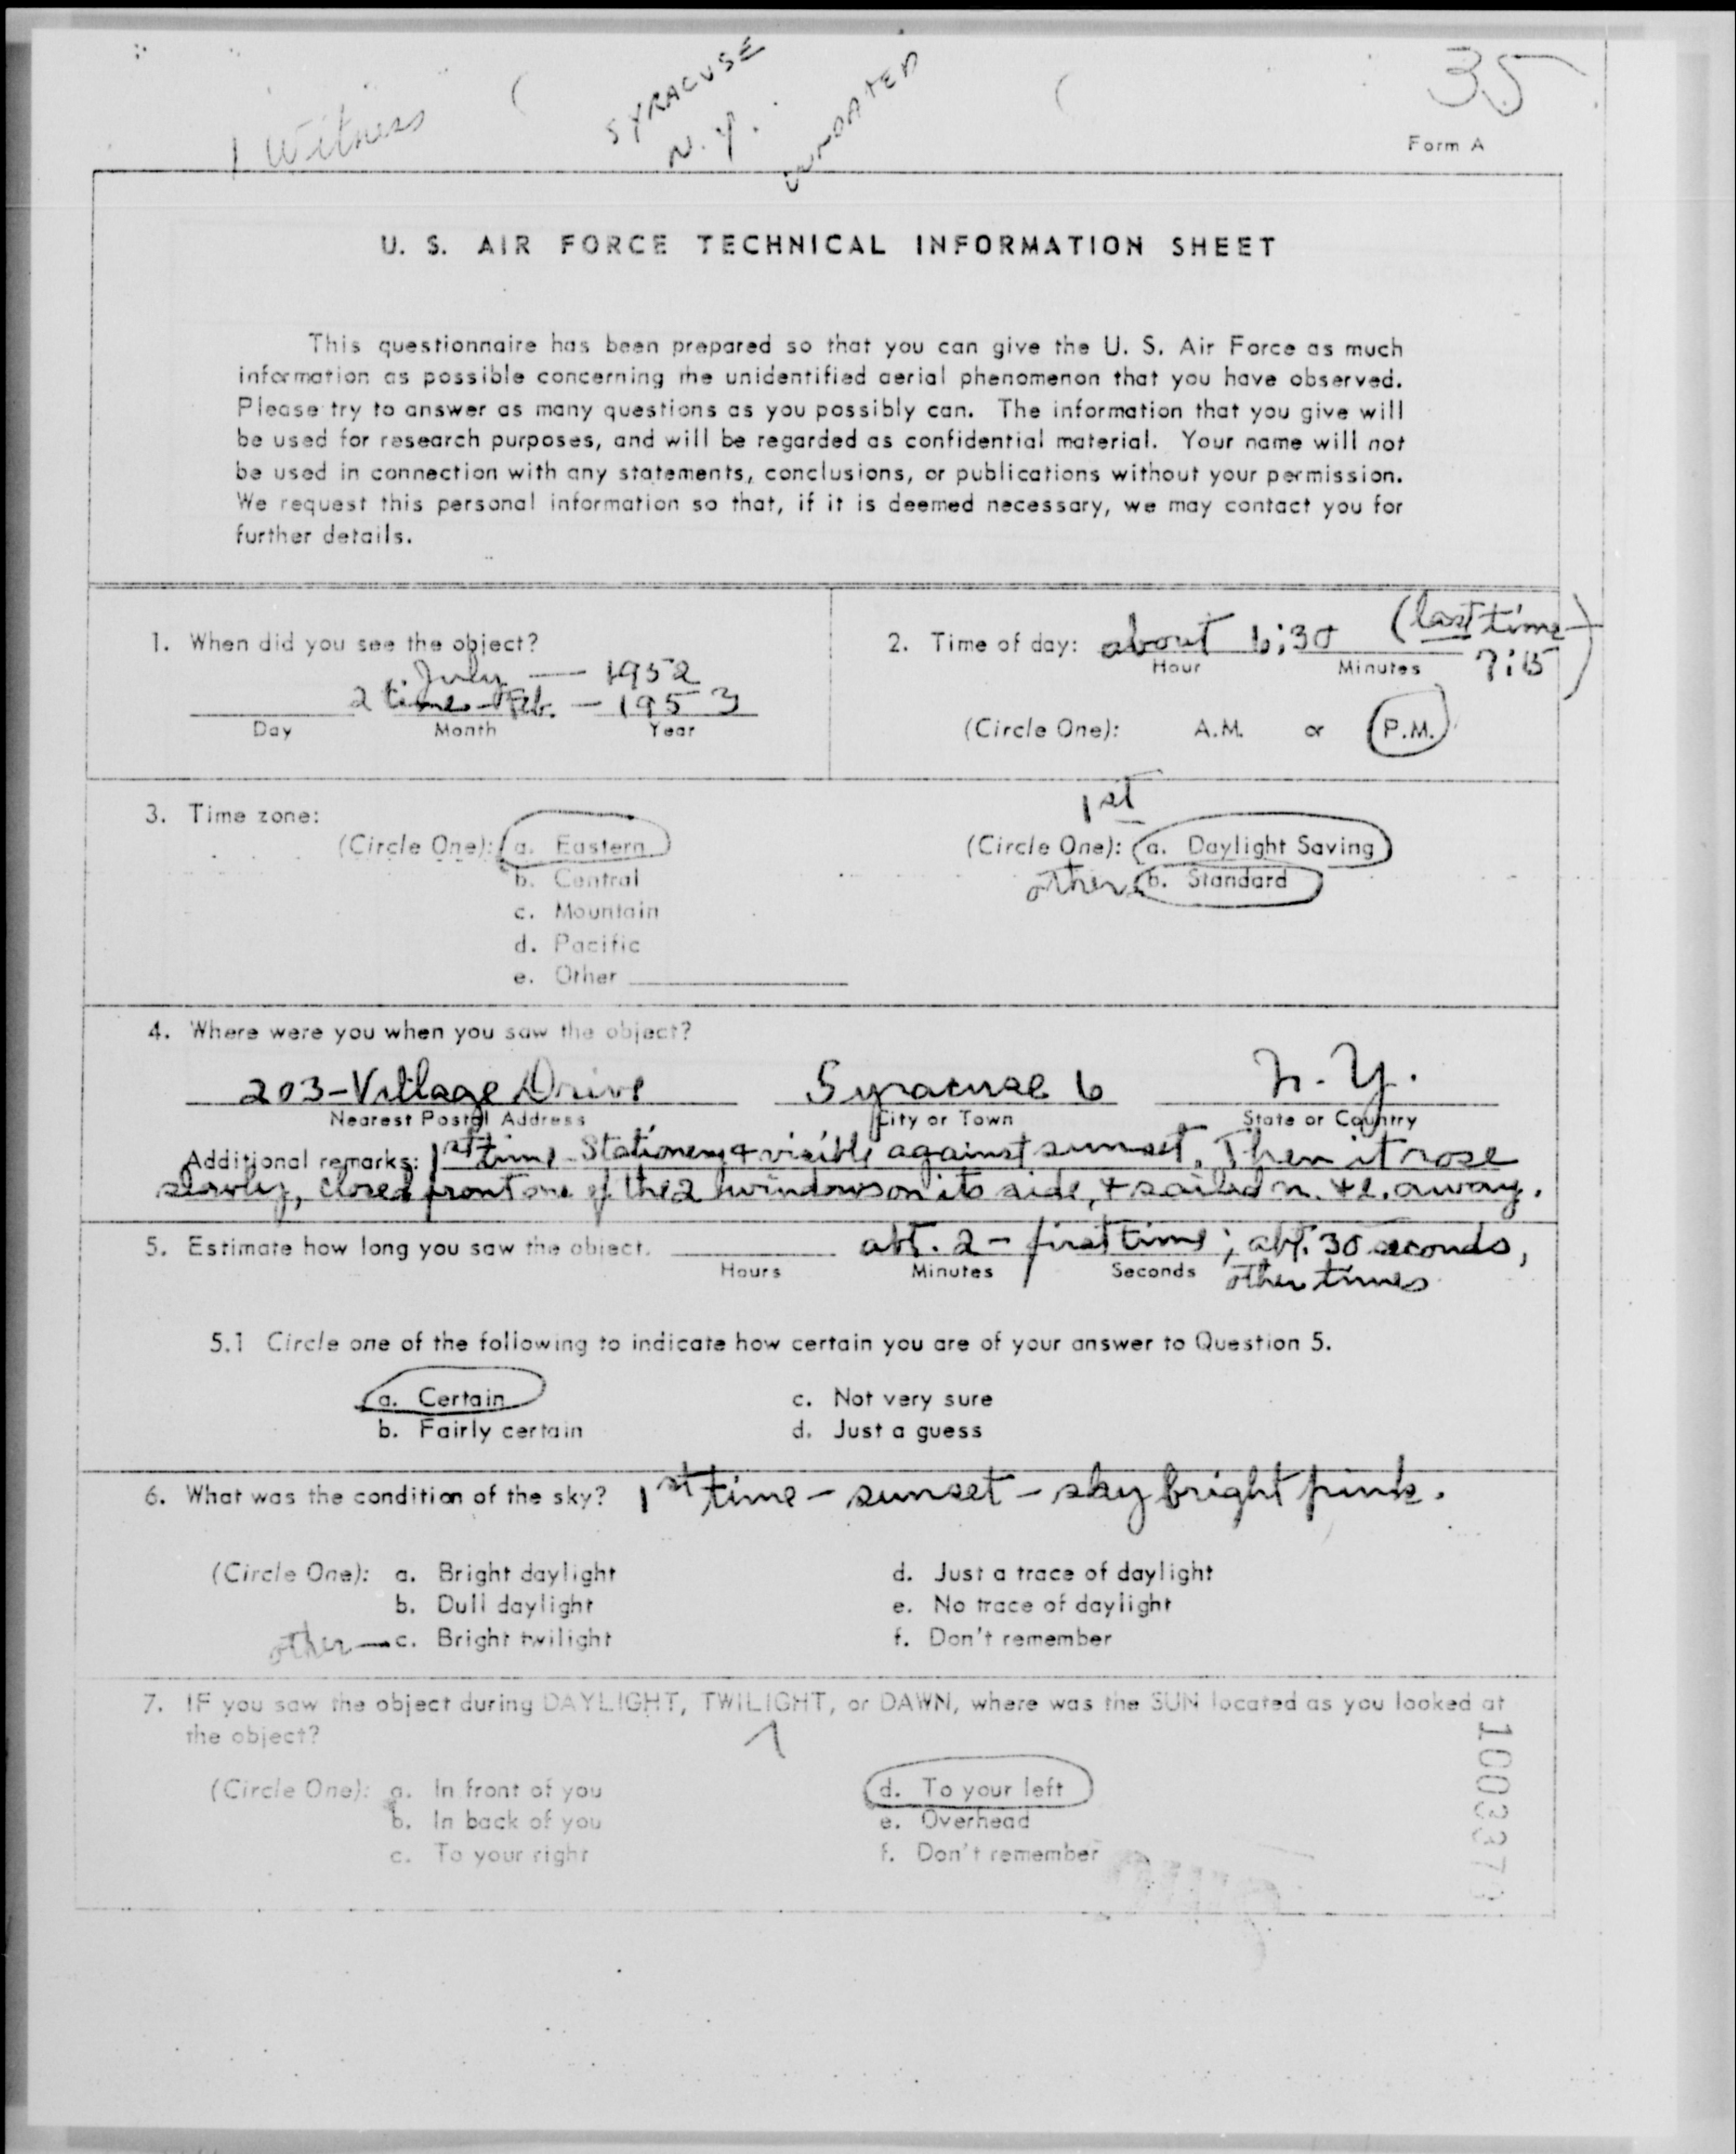 35
1 Witness
SYRACUSE
N.Y.
UNDATED
Form A
U. S. AIR FORCE TECHNICAL INFORMATION SHEET
This questionnaire has been prepared so that you can give the U. S. Air Force as much
information as possible concerning the unidentified aerial phenomenon that you have observed.
Please try to answer as many questions as you possibly can. The information that you give will
be used for research purposes, and will be regarded as confidential material. Your name will not
be used in connection with any statements, conclusions, or publications without your permission.
We request this personal information so that, if it is deemed necessary, we may contact you for
further details.
1. When did you see the object?
July — 1952
2 times - Feb. - 1953
Day Month Year
2. Time of day: about 6:30 (last time 7:15)
Hour Minutes
(Circle One): A.M. or P.M.
3. Time zone:
(Circle One): a. Eastern
b. Central
c. Mountain
d. Pacific
e. Other
1st
(Circle One): a. Daylight Saving
others b. Standard
4. Where were you when you saw the object?
203-Village Drive Syracuse 6 N.Y.
Nearest Postal Address City or Town State or Country
Additional remarks: 1st time - Stationery & visible against sunset. Then it rose
slowly, closed front one of the 2 windows on its side, & sailed n. & e. away.
5. Estimate how long you saw the object. abt. 2 - first time; abt. 30 seconds,
Hours Minutes Seconds other times
5.1 Circle one of the following to indicate how certain you are of your answer to Question 5.
a. Certain c. Not very sure
b. Fairly certain d. Just a guess
6. What was the condition of the sky? 1st time - sunset - sky bright pink.
(Circle One): a. Bright daylight d. Just a trace of daylight
b. Dull daylight e. No trace of daylight
other — c. Bright twilight f. Don't remember
7. IF you saw the object during DAYLIGHT, TWILIGHT, or DAWN, where was the SUN located as you looked at
the object?
(Circle One): a. In front of you d. To your left
b. In back of you e. Overhead
c. To your right f. Don't remember